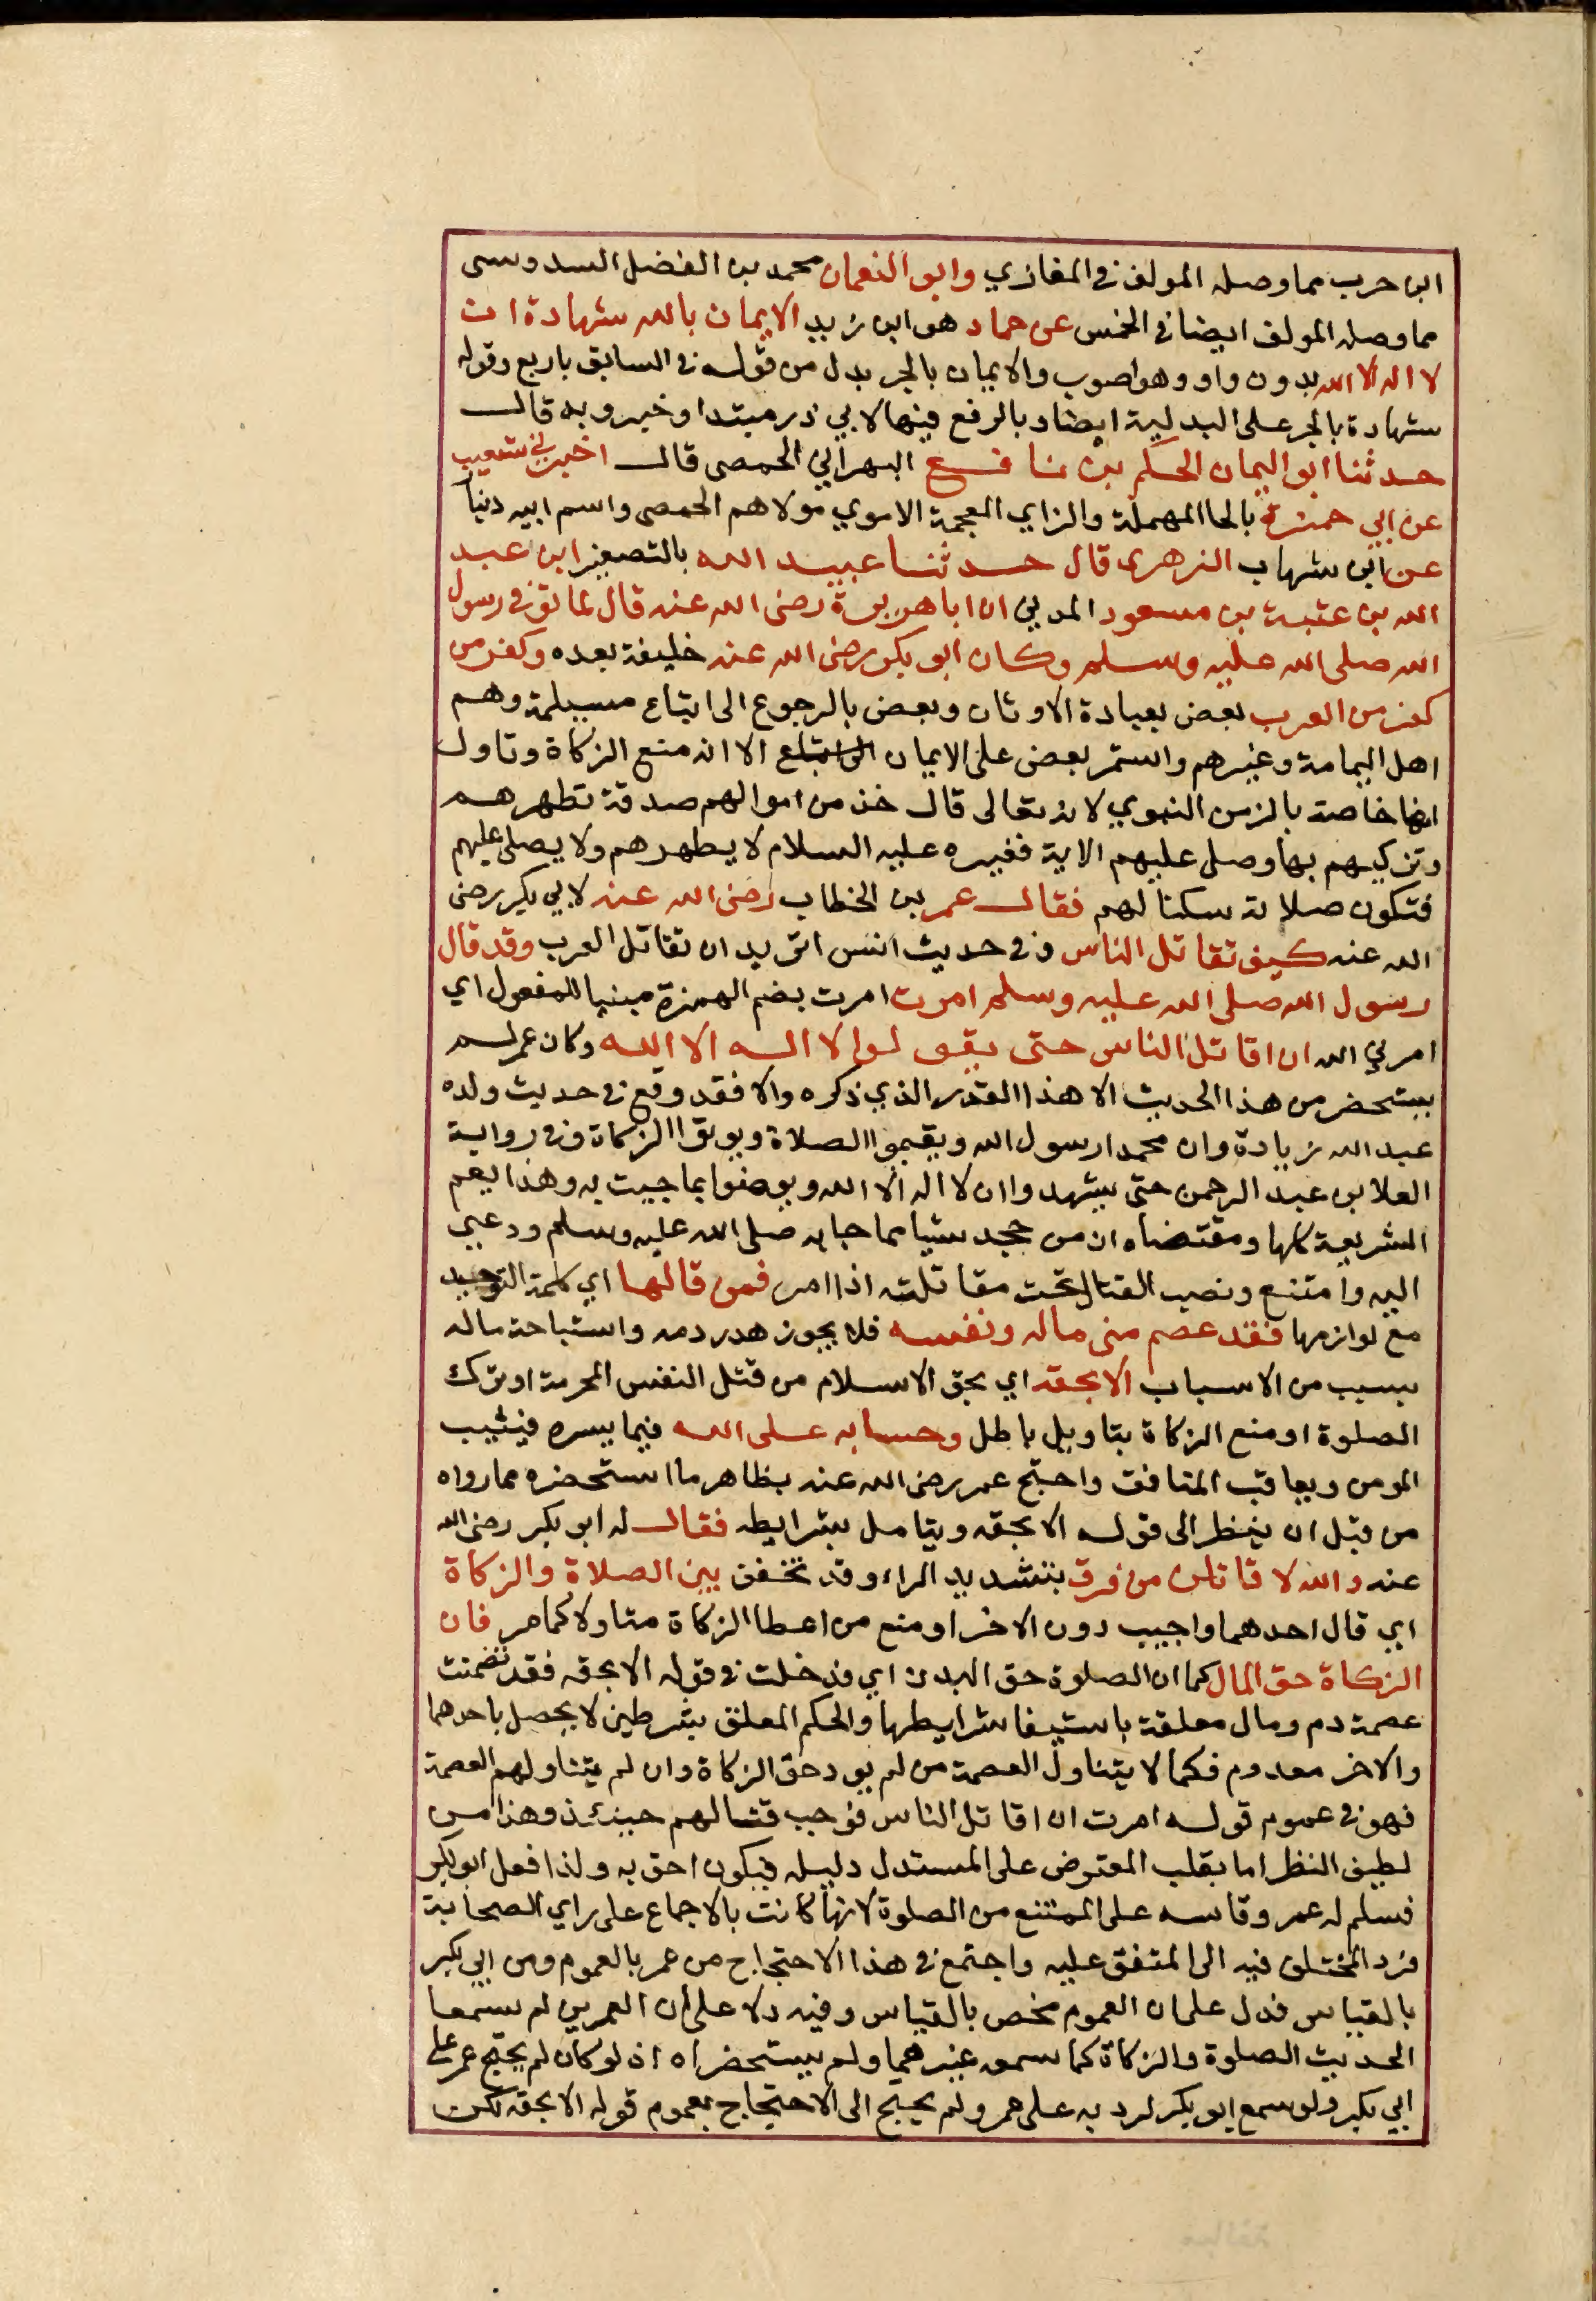 ابن حرب مما وصله المولف في المغازي وابو النعمان محمد بن الفضل السدوسى
مما وصله المولف ايضا في الخمس عن حماد هو ابن زيد الايمان بالله شهادة ان
لا اله الا الله بدون واو وهو اصوب والايمان بالجر بدل من قوله في السابق باربع وقوله
شهادة بالجر على البدلية ايضا وبالرفع فيها لابي ذر مبتدا وخبر وبه قال
حدثنا ابو اليمان الحكم بن نافع البهراني الحمصى قال اخبرني شعيب
عن ابي حمزة بالحا المهملة والزاي المعجمة الاموي مولاهم الحمصى واسم ابيه دنيا
عن ابن شهاب الزهرى قال حدثنا عبيد الله بالتصغير ابن عبد
الله بن عتبة بن مسعود المدني ان ابا هريرة رضى الله عنه قال لما توفى رسول
الله صلى الله عليه وسلم وكان ابو بكر رضى الله عنه خليفة بعده وكفر من
كفر من العرب بعض بعبادة الاوثان وبعض بالرجوع الى اتباع مسيلمة وهم
اهل اليمامة وغيرهم واستمر بعض على الايمان الا انه منع الزكاة وتاول
انها خاصة بالزمن النبوي لانه تعالى قال خذ من اموالهم صدقة تطهرهم
وتزكيهم بها وصل عليهم الاية فغيره عليه السلام لا يطهرهم ولا يصلى عليهم
فتكون صلاته سكنا لهم فقال عمر بن الخطاب رضى الله عنه لابي بكر رضى
الله عنه كيف تقاتل الناس وفي حديث انس اتريد ان تقاتل العرب وقد قال
رسول الله صلى الله عليه وسلم امرت امرت بضم الهمزة مبنيا للمفعول اي
امرني الله ان اقاتل الناس حتى يقولوا لا اله الا الله وكان عمر لم
يستحضر من هذا الحديث الا هذا القدر الذي ذكره والا فقد وقع في حديث ولده
عبد الله زيادة وان محمدا رسول الله ويقيموا الصلاة ويوتوا الزكاة وفي رواية
العلا بن عبد الرحمن حتى يشهدوا ان لا اله الا الله ويومنوا بما جيت به وهذا يعم
الشريعة كلها ومقتضاه ان من جحد شيا مما جا به صلى الله عليه وسلم ودعى
اليه وامتنع ونصب القتال تجب مقاتلته اذا امر فمن قالها اي كلمة التوحيد
مع لوازمها فقد عصم منى ماله ونفسه فلا يجوز هدر دمه واستباحة ماله
بسبب من الاسباب الا بحقه اي بحق الاسلام من قتل النفس المحرمة او ترك
الصلوة او منع الزكاة بتاويل باطل وحسابه على الله فيما يسره فيثيب
المومن ويعاقب المنافق واحتج عمر رضى الله عنه بظاهر ما استحضره مما رواه
من قبل ان ينظر الى قوله الا بحقه ويتامل شرايطه فقال له ابو بكر رضى الله
عنه والله لا قاتلن من فرق بتشديد الراء وقد تخفف بين الصلاة والزكاة
اي قال احدهما واجب دون الاخر او منع من اعطا الزكاة متاولا كما مر فان
الزكاة حق المال كما ان الصلوة حق البدن اي فدخلت في قوله الا بحقه فقد تضمنت
عصمة دم ومال معلقة باستيفا شرايطها والحكم المعلق بشرطين لا يحصل باحدهما
والاخر معدوم فكما لا يتناول العصمة من لم يود حق الزكاة وان لم يتناولهم العصمة
فهو في عموم قوله امرت ان اقاتل الناس فوجب قتالهم حينئذ وهذا من
لطيف النظر اما بقلب المعترض على المستدل دليله فيكون احق به ولذا فعل ابو بكر
فسلم له عمر وقاسه على الممتنع من الصلوة لانها كانت بالاجماع على راي الصحابة
فرد المختلف فيه الى المتفق عليه واجتمع في هذا الاحتجاج من عمر بالعموم ومن ابي بكر
بالقياس فدل على ان العموم مخص بالقياس وفيه دلا على ان العمرين لم سمعا
الحديث الصلوة والزكاة كما سمعه غيرهما ولم يستحضراه اذ لو كان لم يحتج عمر على
ابي بكر ولو سمع ابو بكر لرد به على عمر ولم يحتج الى الاحتجاج بعموم قوله الا بحقه لكن